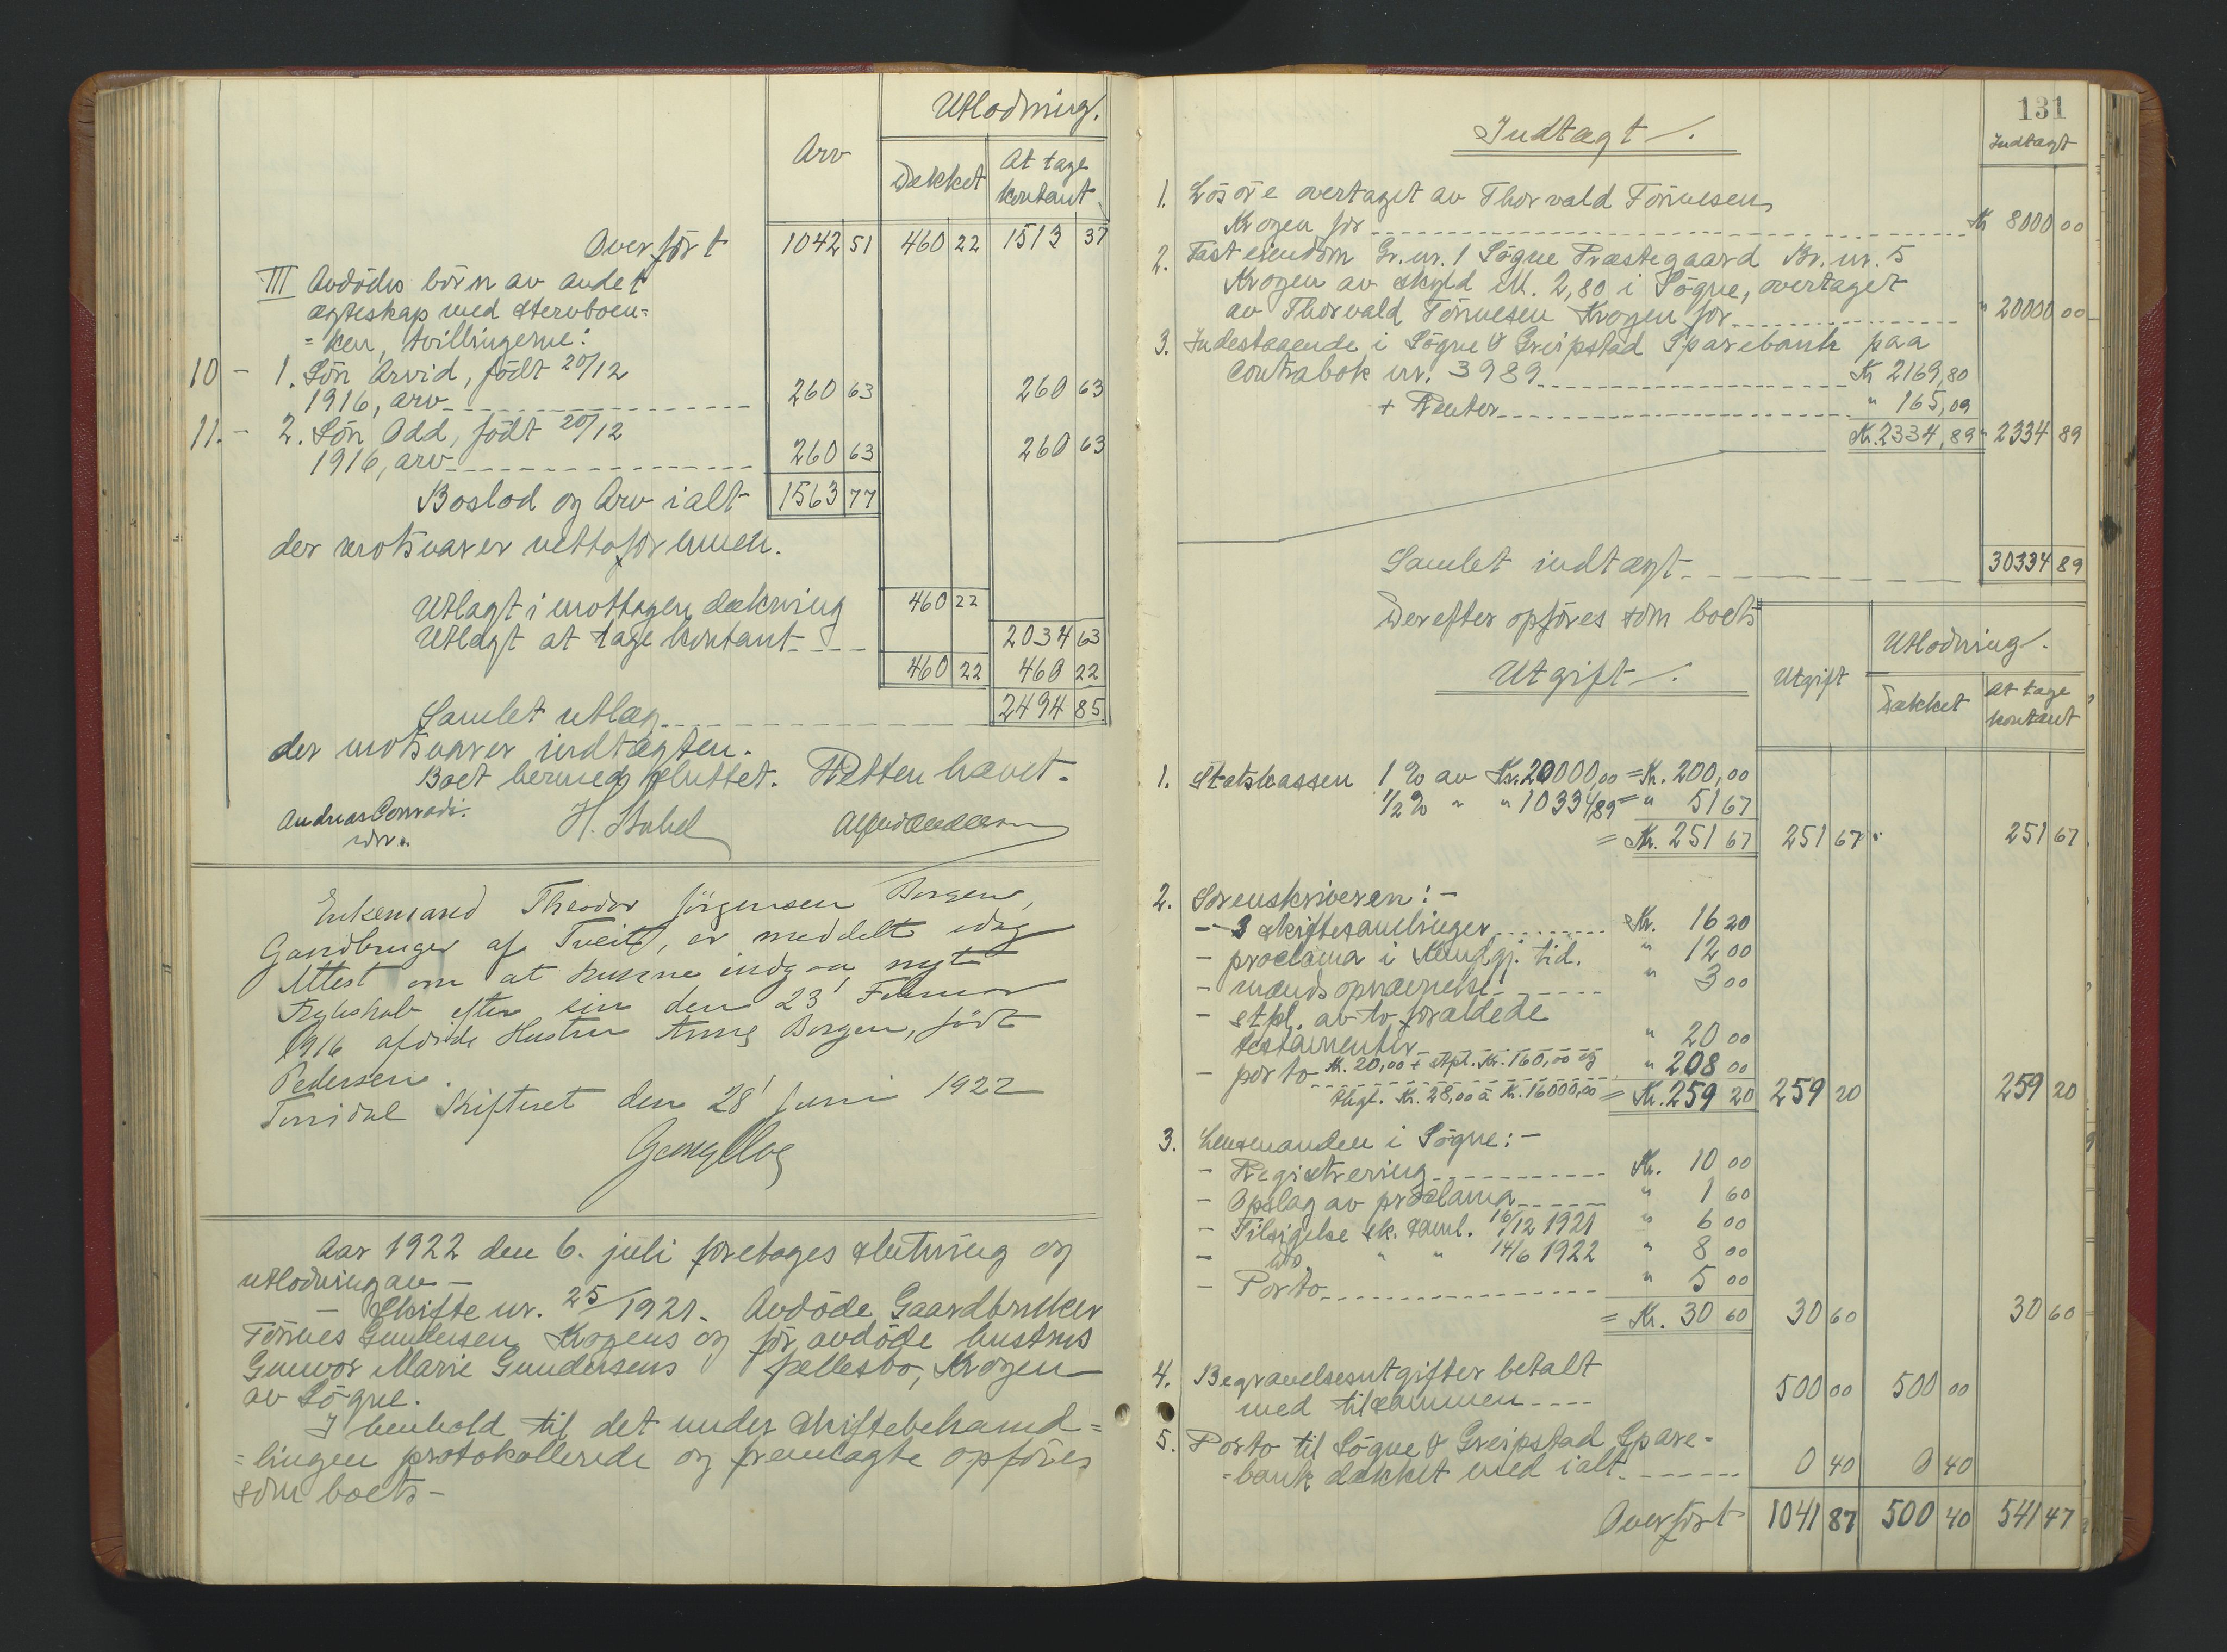 Utlodning.
Arv
Dækket
At tage
kontant.
Overført 1042 51 460 22 1513 37
III Avdødes børn av andet
egteskap med stervboen=
=ken, tvillingerne:
10 - 1. Søn Arvid, født 20/12
1916, arv 260 63 260 63
11. - 2. Søn Odd, født 20/12
1916, arv 260 63 260 63
Boslod og Arv ialt 1563 77
der motsvarer nettoformuen.
Utlagt i mottagen dækning 460 22
Utlagt at tage kontant 2034 63
460 22 460 22
Samlet utlæg 2494 85
der motsvarer indtægten.
Boet hermed sluttet. Retten hævet.
Andreas Conradi.
H. Stubel
Enkemand Theodor Jörgensen Borgen,
Gaardbruger af Tveit, er meddelt idag
Attest om at kunne indgaa nyt
Ægteskab efter sin den 23' Februar
1916 afdøde Hustru Anne Borgen, født
Pedersen.
Torridal Skifteret den 28' Juni 1922
Aar 1922 den 6. juli foretages slutning og
utlodning av -
- Skifte nr. 25/1921. Avdøde Gaardbruker
Tönnes Gundersen Krogens og før avdøde hustrus
Gunvor Marie Gundersens fællesbo, Krogen
av Søgne.
I henhold til det under skiftebehand=
=lingen protokollerede og fremlagte opføres
som boets -
131
Indtægt.
Indtægt
1. Løsøre overtaget av Thorvald Tönnesen
Krogen for Kr 8000 00
2. Fast eiendom Gr. nr. 1 Søgne Præstegaard Br. nr. 5
Krogen av skyld M. 2,80 i Søgne, overtaget
av Thorvald Tönnesen Krogen for " 20000 00
3. Indestaaende i Søgne & Greipstad Sparebank paa
Contrabok nr. 3989 Kr 2169,80
+ Renter " 165,09
Kr. 2334,89 " 2334 89
Samlet indtægt 30334 89
Derefter opføres som boets
Utgift.
Utgift
Utlodning.
Dækket
At tage
kontant
1. Statskassen 1 % av Kr. 20000,00 = Kr. 200,00
1/2 % " " 10334,89 = " 51 67
= Kr. 251 67 251 67 251 67
2. Sorenskriveren: -
- 3 skiftesamlinger Kr. 16 20
- proclama i Kundgj. tid. " 12 00
- mænds opnævnelse " 3 00
- stpl. av to forældede
testamenter " 20 00
- porto Kr. 20,00 + stpl. Kr. 160,00 og " 208 00
Kr. 28,00 à Kr. 16000,00 = Kr. 259 20 259 20 259 20
3. Lensmanden i Søgne: -
- Registrering Kr. 10 00
- Opslag av proclama " 1 60
- Tilsigelse sk. saml. 16/12 1921 " 6 00
- do. " " 14/6 1922 " 8 00
- Porto " 5 00
= Kr. 30 60 30 60 30 60
4. Begravelsesutgifter betalt
med tilsammen 500 00 500 00
5. Porto til Søgne & Greipstad Spare-
=bank dækket med ialt 0 40 0 40
Overført 1041 87 500 40 541 47